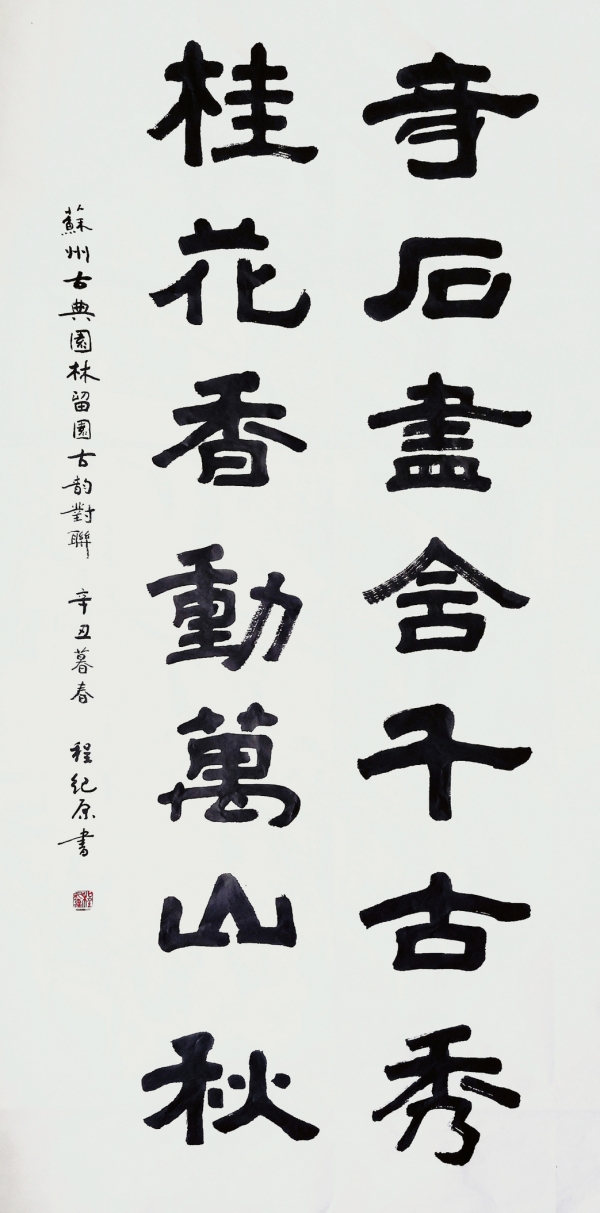 奇石盡含千古秀
桂花香動萬山秋
蘇州古典園林留園古韵對聯 辛丑暮春 程紀原書